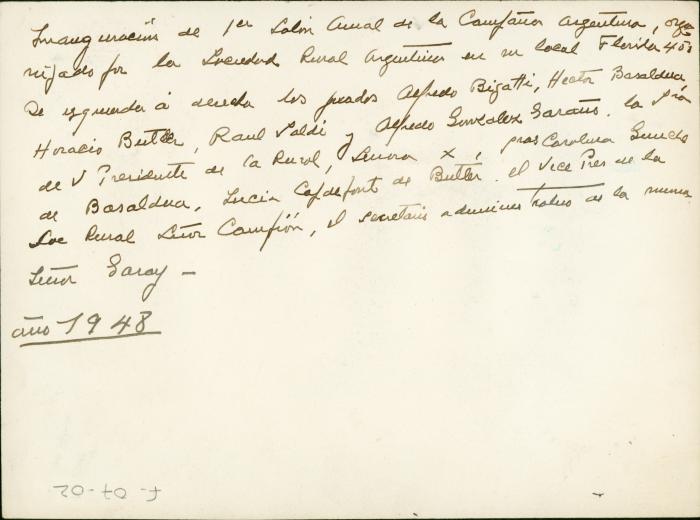 Inauguración de 1er Salón Anual de la Campaña Argentina, orga
nizado por la Sociedad Rural Argentina en su local Florida 460
De izquierda á derecha los jurados Alfredo Bigatti, Hector Basaldúa,
Horacio Butler, Raul Soldi y Alfredo Gonzalez Garaño. la Sra
de V Presidente de la Rural, Señora X, sras Carolina
de Basaldua, Lucia Capdefont de Butler. el Vice Pres de la
Soc Rural Señor Campión, el secretario administrativo de la misma
Señor Garay —
año 1948
F-07-02